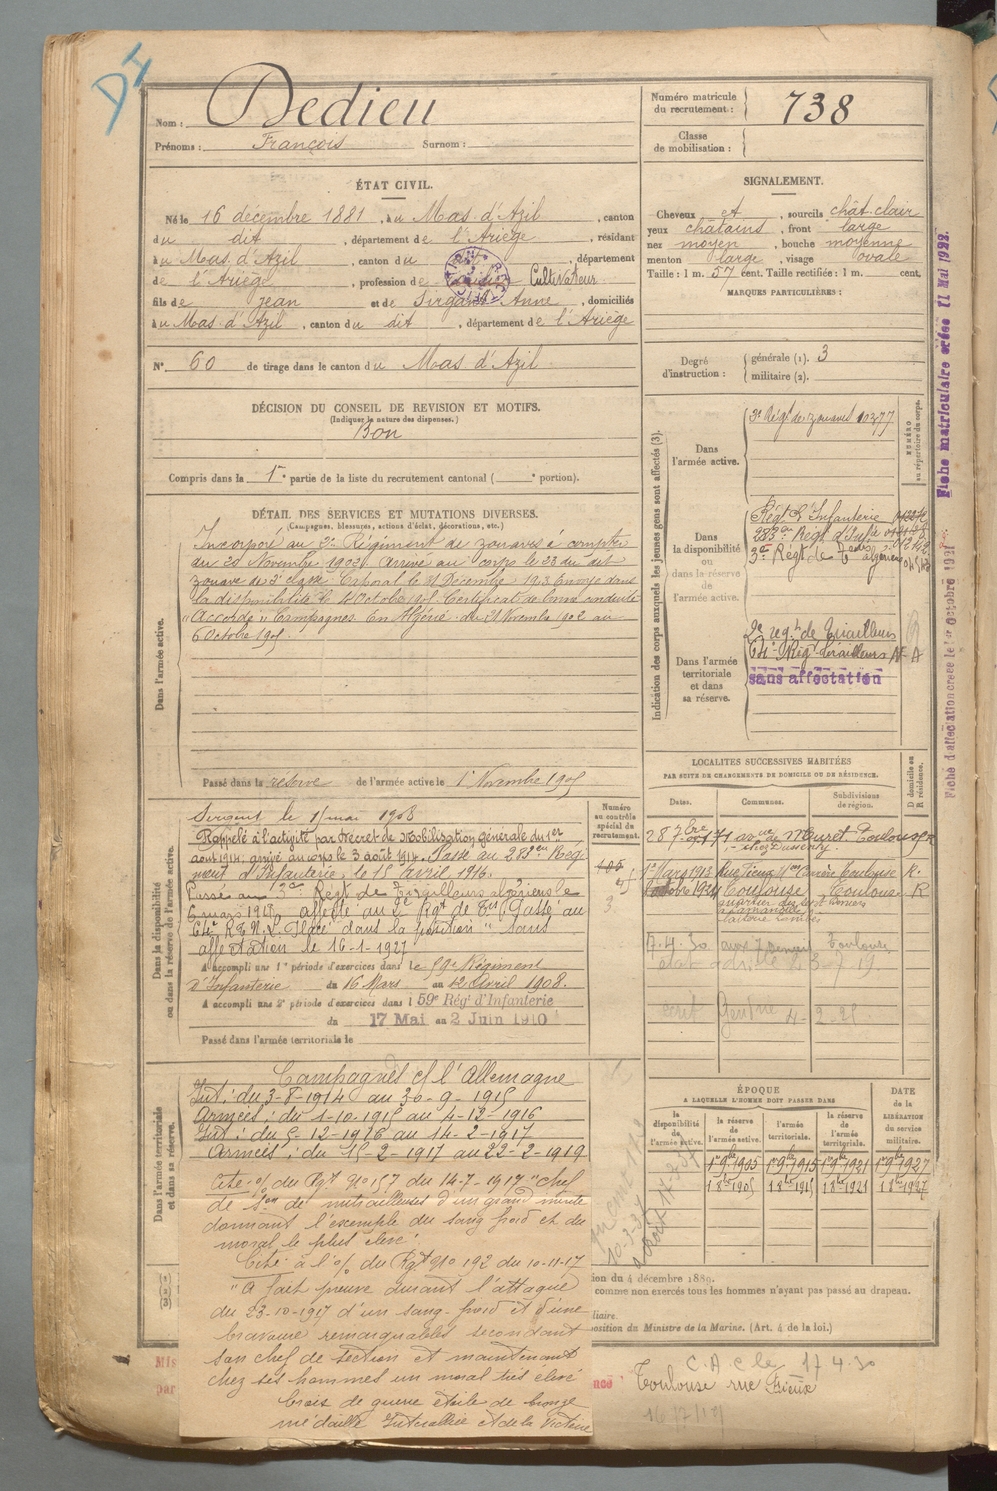 DI
Nom : Dedieu
Prénoms : François Surnom :
Numéro matricule du recrutement : 738
Classe de mobilisation :
ÉTAT CIVIL.
Né le 16 décembre 1881, à u Mas d'Azil, canton
du dit, département de l'Ariège, résidant
à u Mas d'Azil, canton du, département
de l'Ariège, profession de Cultivateur
fils de jean et de Sirgant Anne, domiciliés
à u Mas d'Azil, canton du dit, département de l'Ariège
N° 60 de tirage dans le canton du Mas d'Azil
SIGNALEMENT.
Cheveux et, sourcils chât-clair
yeux châtains, front large
nez moyen, bouche moyenne
menton large, visage ovale
Taille : 1 m. 57 cent. Taille rectifiée : 1 m. cent.
MARQUES PARTICULIÈRES :
Degré d'instruction : générale (1). 3
militaire (2).
DÉCISION DU CONSEIL DE REVISION ET MOTIFS.
(Indiquer la nature des dispenses.)
Bon
Compris dans la 1re partie de la liste du recrutement cantonal ( e portion).
DÉTAIL DES SERVICES ET MUTATIONS DIVERSES.
(Campagnes, blessures, actions d'éclat, décorations, etc.)
Dans l'armée active.
Incorporé au Régiment de zouaves à compter
du Novembre 1902. Arrivé au corps le 23 du dit
zouave de 2e classe Caporal le 31 Décembre 1903 Envoyé dans
la disponibilité le Octobre 1905. Certificat de bonne conduite
"Accordé" Campagnes En Algérie du 21 Novembre 1902 au
6 Octobre 1905.
Passé dans la réserve de l'armée active le 1er Novembre 1905
Indication des corps auxquels les jeunes gens sont affectés (3).
NUMÉRO au répertoire du corps.
Dans l'armée active.
3e Régt de zouaves 10377
Dans la disponibilité ou dans la réserve de l'armée active.
Régt d'Infanterie
283eme Régt d'Infie
3e Régt de algériens
Dans l'armée territoriale et dans sa réserve.
2e régt de Tirailleurs
Régt Tirailleurs N A
sans affectation
Fiche matriculaire créée 11 Mai 1922.
Fiche d'affectation créée le 1er Octobre 1921
Dans la disponibilité ou dans la réserve de l'armée active.
Sergent le 1 mai 1908
Rappelé à l'activité par Décret de Mobilisation Générale du 1er
août 1914, arrivé au corps le 3 août 1914. Passé au 283eme Régi
ment d'Infanterie, le 15 Avril 1916.
Passé au 3e Régt de Tirailleurs algériens le
6 mars 1919, affecté au 2e Rgt de Passé au
Placé dans la position "sans
affectation le 16-1-1927
A accompli une 1re période d'exercices dans le 59e Régiment
d'Infanterie du 16 Mars au 12 Avril 1908.
A accompli une 2e période d'exercices dans l 59e Régt d'Infanterie
du 17 Mai au 2 Juin 1910
Passé dans l'armée territoriale le
Numéro au contrôle spécial du recrutement.
LOCALITÉS SUCCESSIVES HABITÉES
PAR SUITE DE CHANGEMENTS DE DOMICILE OU DE RÉSIDENCE.
Dates. Communes. Subdivisions de région. D domicile ou R résidence.
71 avue de Muret. Toulouse R
1r Mars 1913 Toulouse R.
Octobre 1921 Toulouse Toulouse R
quartier des sept deniers
17.4.30 Toulouse
Dans l'armée territoriale et dans sa réserve.
Campagnes c/ l'Allemagne
Int : du 3-8-1914 au 30-9-1915
Armées : du 1-10-1915 au 4-12-1916
Int : du 5-12-1916 au 14-2-1917
Armées : du 15-2-1917 au 22-2-1919
Cité o/ du Rgt N° 157 du 14-7-1917 "chef
de Son de mitrailleuses d'un grand mérite
donnant l'exemple du sang froid et du
moral le plus élevé."
Cité à l'o/ du Rgt N° 192 du 10-11-17
"A fait preuve durant l'attaque
du 23-10-1917 d'un sang-froid et d'une
bravoure remarquables secondant
son chef de section et maintenant
chez ses hommes un moral très élevé
Croix de guerre étoile de bronze
médaille Interalliée et de la Victoire
ÉPOQUE
A LAQUELLE L'HOMME DOIT PASSER DANS
la disponibilité de l'armée active. la réserve de l'armée active. l'armée territoriale. la réserve de l'armée territoriale. DATE de la LIBÉRATION du service militaire.
1er 9bre 1905 1er 9bre 1915 1er 9bre 1921 1er 9bre 1927
1 8bre 1905 1 8bre 1915 1 8bre 1921 1 8bre 1927
ion du 4 décembre 1889.
comme non exercés tous les hommes n'ayant pas passé au drapeau.
liaire.
position du Ministre de la Marine. (Art. 4 de la loi.)
Mis
par
C.A.C le 17 4.30
Toulouse rue Rieux